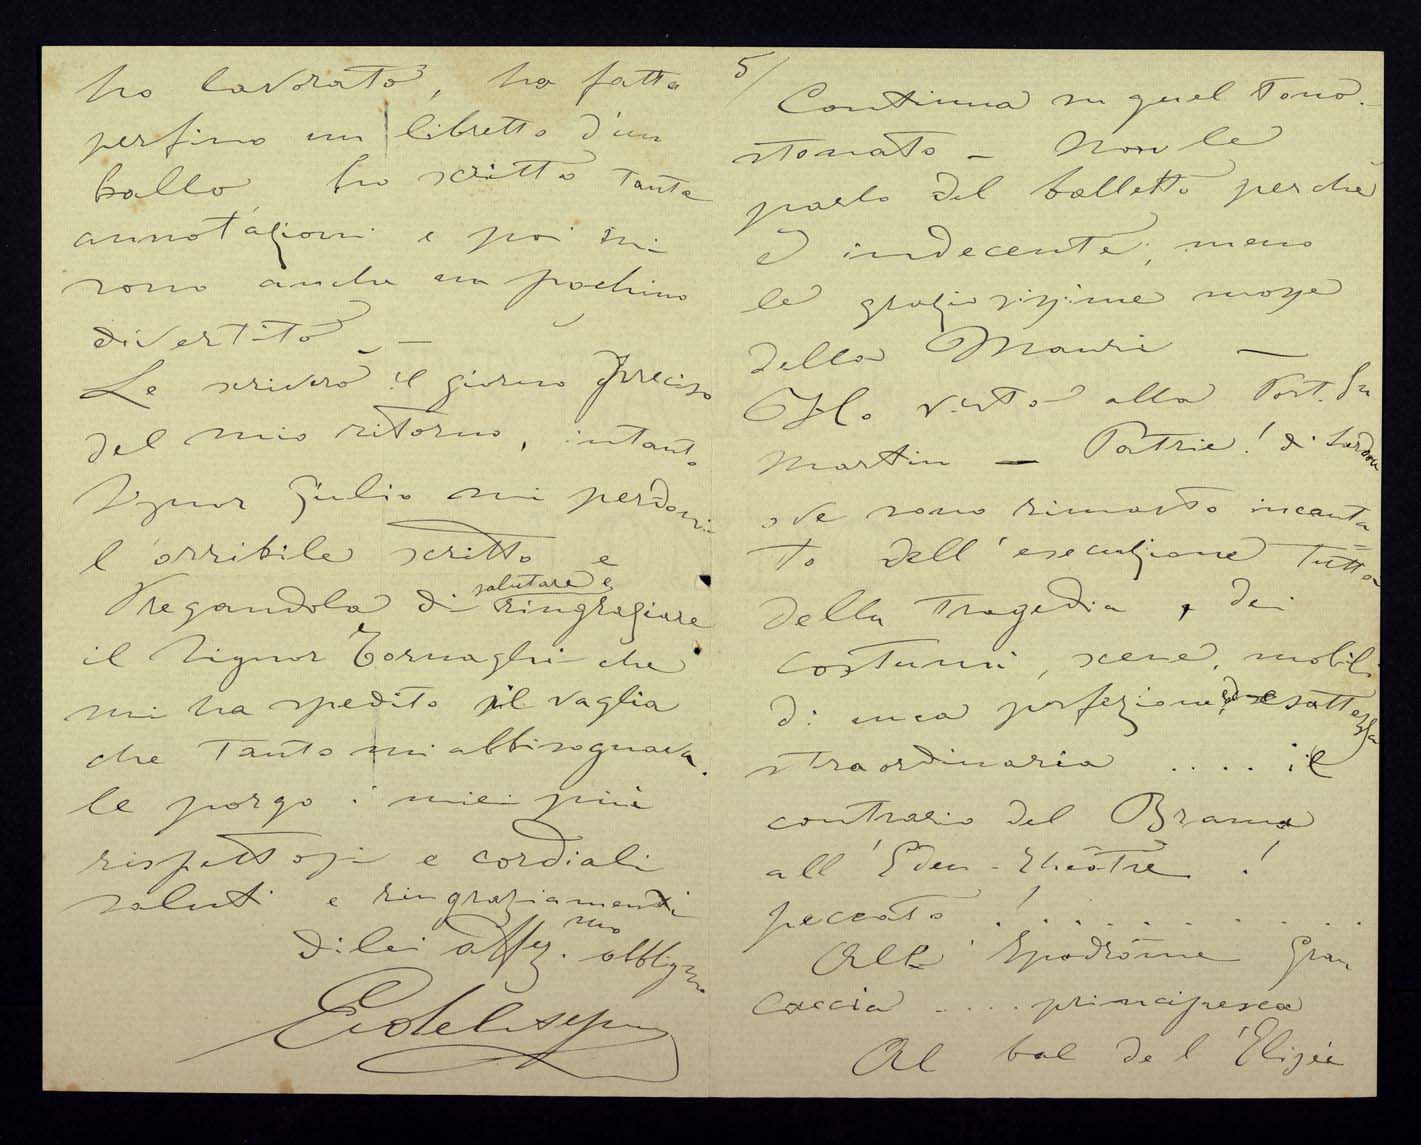 ho lavorato, ho fatto
perfino un libretto d'un
ballo ho scritto tante
annotazioni e poi mi
sono anche un pochino
divertito —
Le scriverò il giorno preciso
del mio ritorno, intanto
Signor Giulio mi perdoni
l'orribile scritto e
Pregandola di salutare e ringraziare
il Signor Tornaghi che
mi ha spedito il vaglia
che tanto mi abbisognava.
le porgo i miei più
rispettosi e cordiali
saluti e ringraziamenti
di lei affez.mo obbligmo
Edel
5/
Continua su quel tono.
stonato — Non le
parlo del balletto perchè
è indecente, meno
le graziosissime mosse
della Mauri —
Ho visto alla Port. Sn
Martin — Patrie! di Sardou
ove sono rimasto incanta=
to dell'esecuzione tutta
della tragedia, dei
costumi, scene, mobili
di una perfezione ed esattezza
straordinaria .... il
contrario del Brama
all'Eden-Théâtre !
peccato! . . . . . . . . . .
All'Ypodrôme Gran
Caccia .... principesca
Al bal de l'Elisée